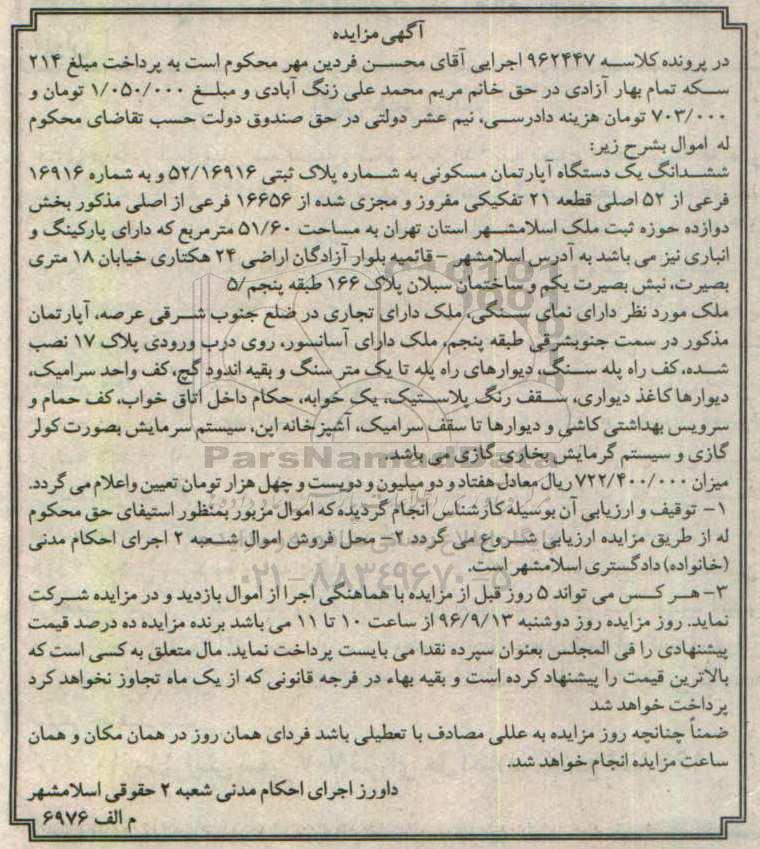 آگهی مزایده
در پرونده کلاسه ۹۶۲۴۴۷ اجرایی آقای محسن فردین مهر محکوم است به پرداخت مبلغ ۲۱۴
سکه تمام بهار آزادی در حق خانم مریم محمد علی زنگ آبادی و مبلغ ۱/۰۵۰/۰۰۰ تومان و
۷۰۳/۰۰۰ تومان هزینه دادرسی، نیم عشر دولتی در حق صندوق دولت حسب تقاضای محکوم
له اموال بشرح زیر:
ششدانگ یک دستگاه آپارتمان مسکونی به شماره پلاک ثبتی ۵۲/۱۶۹۱۶ و به شماره ۱۶۹۱۶
فرعی از ۵۲ اصلی قطعه ۲۱ تفکیکی مفروز و مجزی شده از ۱۶۶۵۶ فرعی از اصلی مذکور بخش
دوازده حوزه ثبت ملک اسلامشهر استان تهران به مساحت ۵۱/۶۰ مترمربع که دارای پارکینگ و
انباری نیز می باشد به آدرس اسلامشهر – قائمیه بلوار آزادگان اراضی ۲۴ هکتاری خیابان ۱۸ متری
بصیرت، نبش بصیرت یکم و ساختمان سبلان پلاک ۱۶۶ طبقه پنجم/۵
ملک مورد نظر دارای نمای سنگی، ملک دارای تجاری در ضلع جنوب شرقی عرصه، آپارتمان
مذکور در سمت جنوبشرقی طبقه پنجم، ملک دارای آسانسور، روی درب ورودی پلاک ۱۷ نصب
شده، کف راه پله سنگ، دیوارهای راه پله تا یک متر سنگ و بقیه اندود گچ، کف واحد سرامیک،
دیوارها کاغذ دیواری، سقف رنگ پلاستیک، یک خوابه، حکام داخل اتاق خواب، کف حمام و
سرویس بهداشتی کاشی و دیوارها تا سقف سرامیک، آشپزخانه اپن، سیستم سرمایش بصورت کولر
گازی و سیستم گرمایش بخاری گازی می باشد.
میزان ۷۲۲/۴۰۰/۰۰۰ ریال معادل هفتاد و دو میلیون و دویست و چهل هزار تومان تعیین واعلام می گردد.
۱- توقیف و ارزیابی آن بوسیله کارشناس انجام گردیده که اموال مزبور بمنظور استیفای حق محکوم
له از طریق مزایده ارزیابی شروع می گردد ۲- محل فروش اموال شعبه ۲ اجرای احکام مدنی
(خانواده) دادگستری اسلامشهر است.
۳- هر کس می تواند ۵ روز قبل از مزایده با هماهنگی اجرا از اموال بازدید و در مزایده شرکت
نماید. روز مزایده روز دوشنبه ۹۶/۹/۱۳ از ساعت ۱۰ تا ۱۱ می باشد برنده مزایده ده درصد قیمت
پیشنهادی را فی المجلس بعنوان سپرده نقدا می بایست پرداخت نماید. مال متعلق به کسی است که
بالاترین قیمت را پیشنهاد کرده است و بقیه بهاء در فرجه قانونی که از یک ماه تجاوز نخواهد کرد
پرداخت خواهد شد
ضمناً چنانچه روز مزایده به عللی مصادف با تعطیلی باشد فردای همان روز در همان مکان و همان
ساعت مزایده انجام خواهد شد.
داورز اجرای احکام مدنی شعبه ۲ حقوقی اسلامشهر
م الف ۶۹۷۶
ParsNamadData
۰۲۱-۸۸۳۴۹۶۷۰-۵